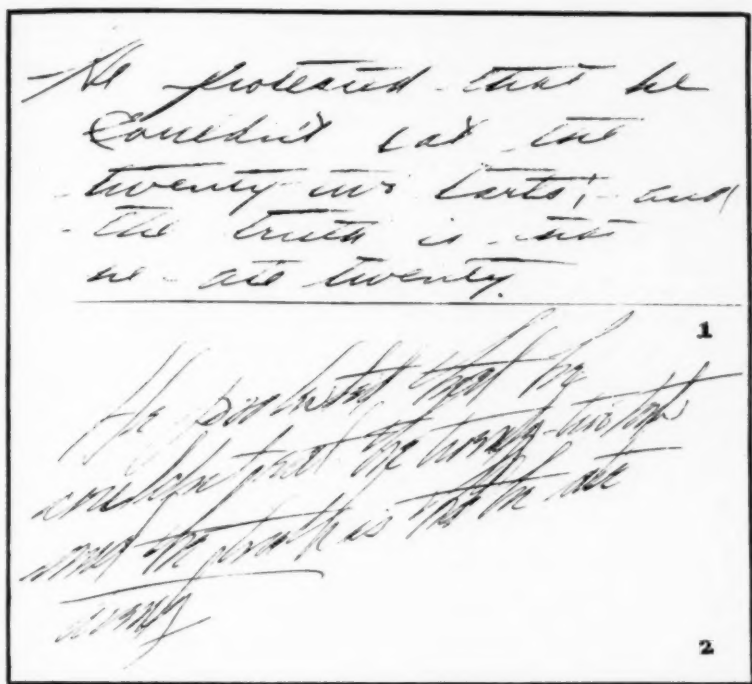 He protested that he
couldn't eat the
twenty-two tarts; and
the truth is that
he ate twenty.
1
He protested that he
couldn't eat the twenty-two tarts
and the truth is that he ate
twenty
2